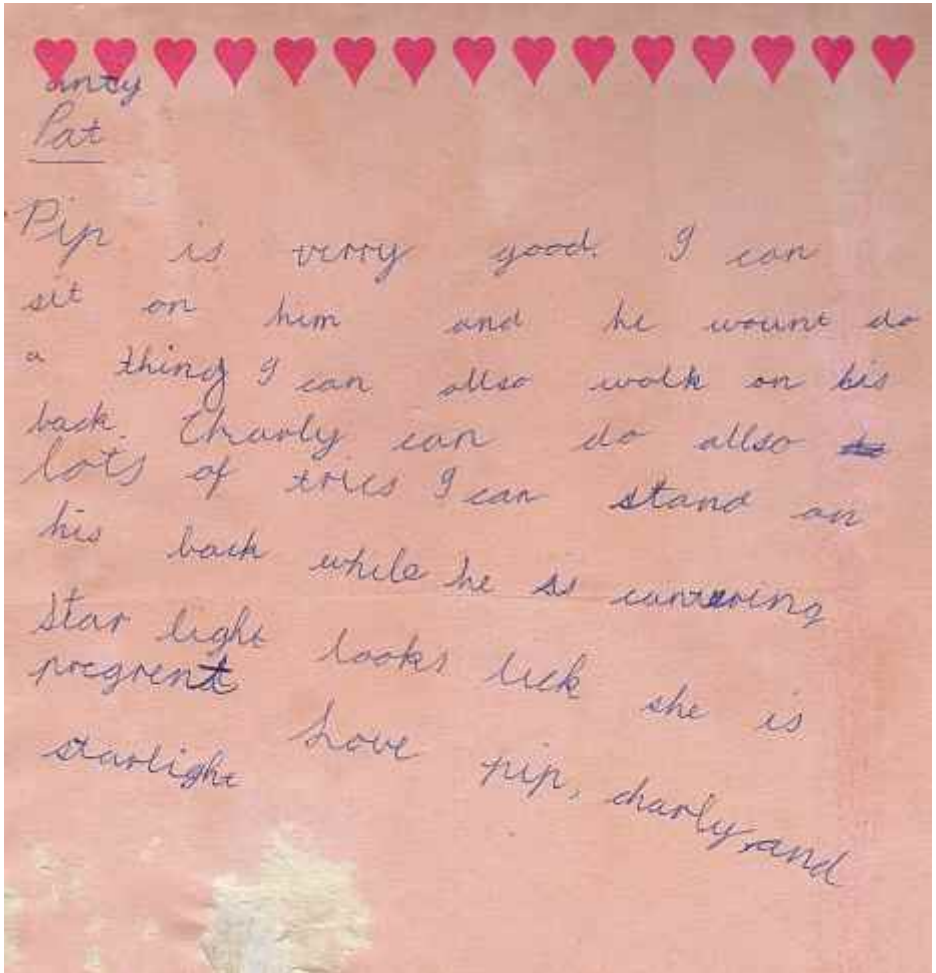 anty
Pat
Pip is verry good. I can
sit on him and he wount do
a thing I can allso walk on his
back. Charly can do allso
lots of trics I can stand on
his back while he is cantering
Star light looks lick she is
pregrent
Love pip, charly, and
starlight